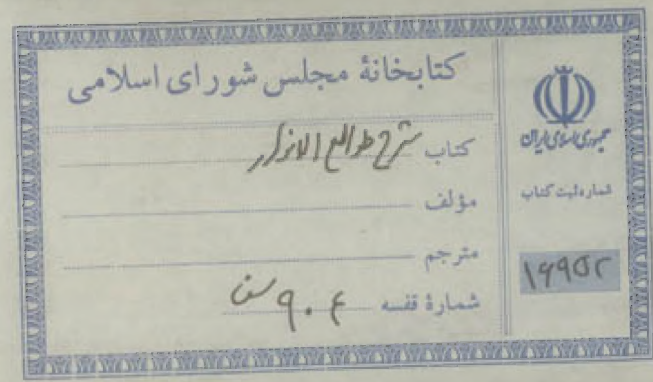 کتابخانهٔ مجلس شورای اسلامی
کتاب شرح طوالع الانوار
مؤلف
مترجم
شمارهٔ قفسه ۹۰۴
جمهوری اسلامی ایران
شماره ثبت کتاب
۱۶۹۵۲